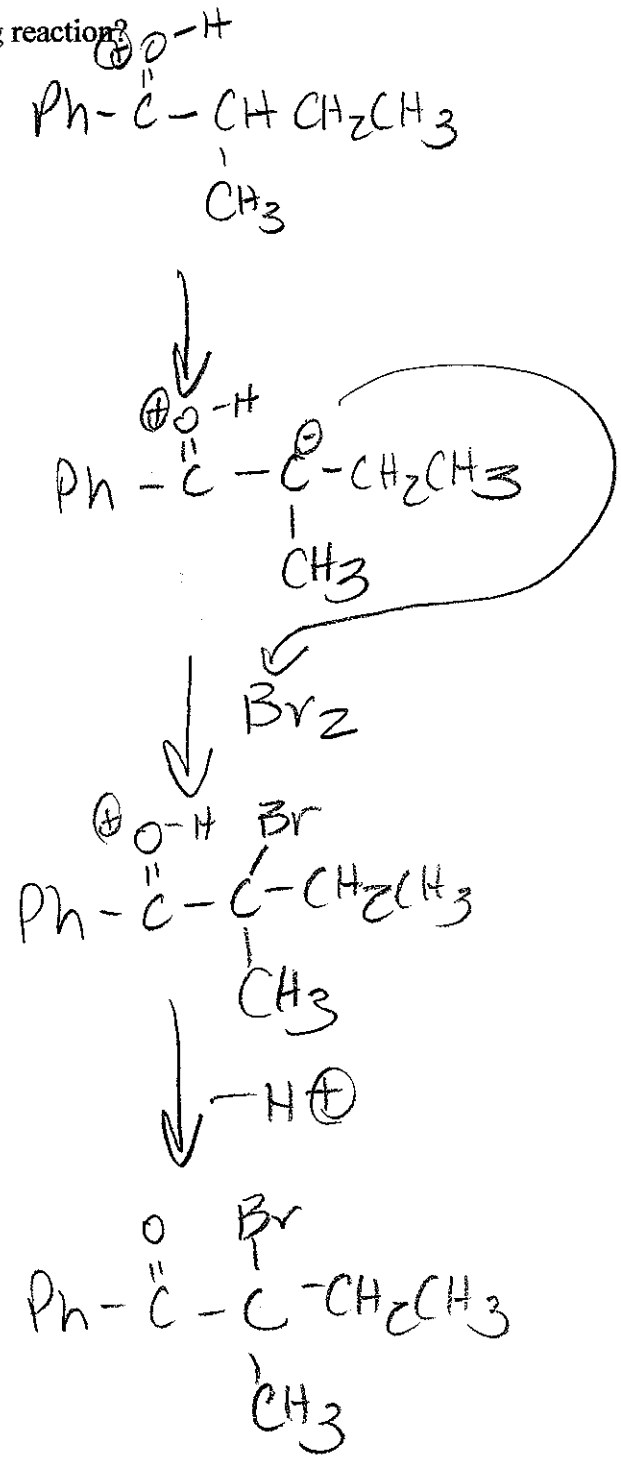 reaction?
⊕ O-H
Ph-C-CHCH2CH3
CH3
⊕ O-H
⊖
Ph-C-C-CH2CH3
CH3
Br2
⊕ O-H Br
Ph-C-C-CH2CH3
CH3
-H⊕
O Br
Ph-C-C-CH2CH3
CH3